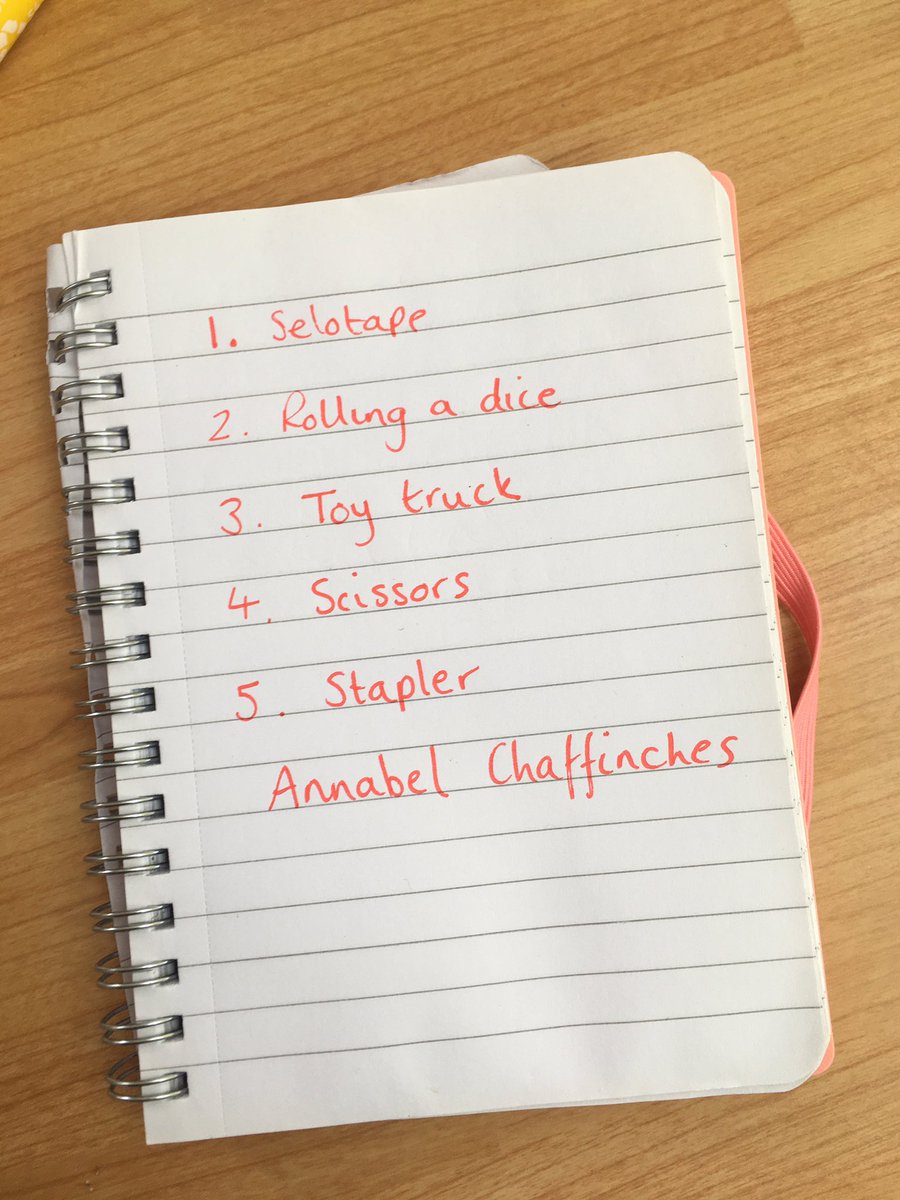 1. Selotape
2. Rolling a dice
3. Toy truck
4. Scissors
5. Stapler
Annabel Chaffinches